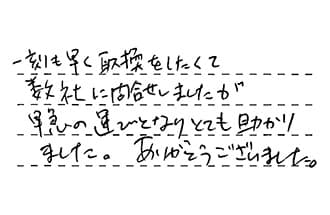 一刻も早く取換をしたくて
数社に問合せしましたが
早急の運びとなりとても助かり
ました。ありがとうございました。